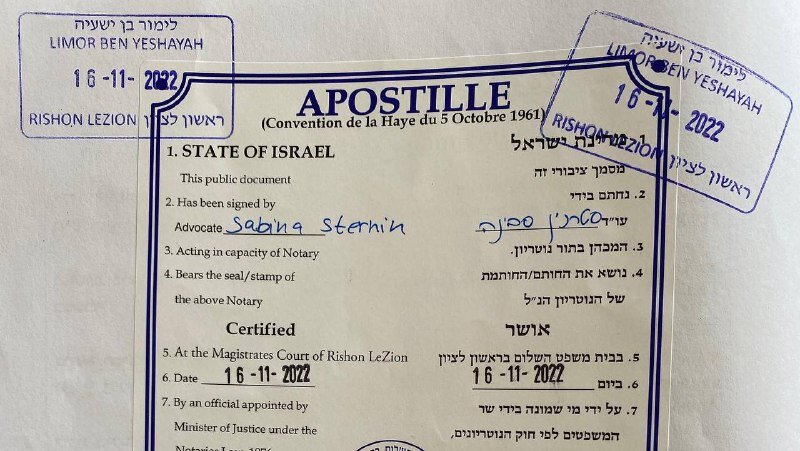 לימור בן ישעיה
LIMOR BEN YESHAYAH
16-11-2022
RISHON LEZION ראשון לציון
לימור בן ישעיה
LIMOR BEN YESHAYAH
16-11-2022
RISHON LEZION ראשון לציון
APOSTILLE
(Convention de la Haye du 5 Octobre 1961)
1. STATE OF ISRAEL
This public document
2. Has been signed by
Advocate Sabina Sternin
3. Acting in capacity of Notary
4. Bears the seal/stamp of
the above Notary
Certified
5. At the Magistrates Court of Rishon LeZion
6. Date 16-11-2022
7. By an official appointed by
Minister of Justice under the
Notaries Law 1976
1. מדינת ישראל
מסמך ציבורי זה
2. נחתם בידי
עו"ד סטרנין סבינה
3. המכהן בתור נוטריון.
4. נושא את החותם/החותמת
של הנוטריון הנ"ל
אושר
5. בבית משפט השלום בראשון לציון
6. ביום 16-11-2022
7. על ידי מי שמונה בידי שר
המשפטים לפי חוק הנוטריונים,